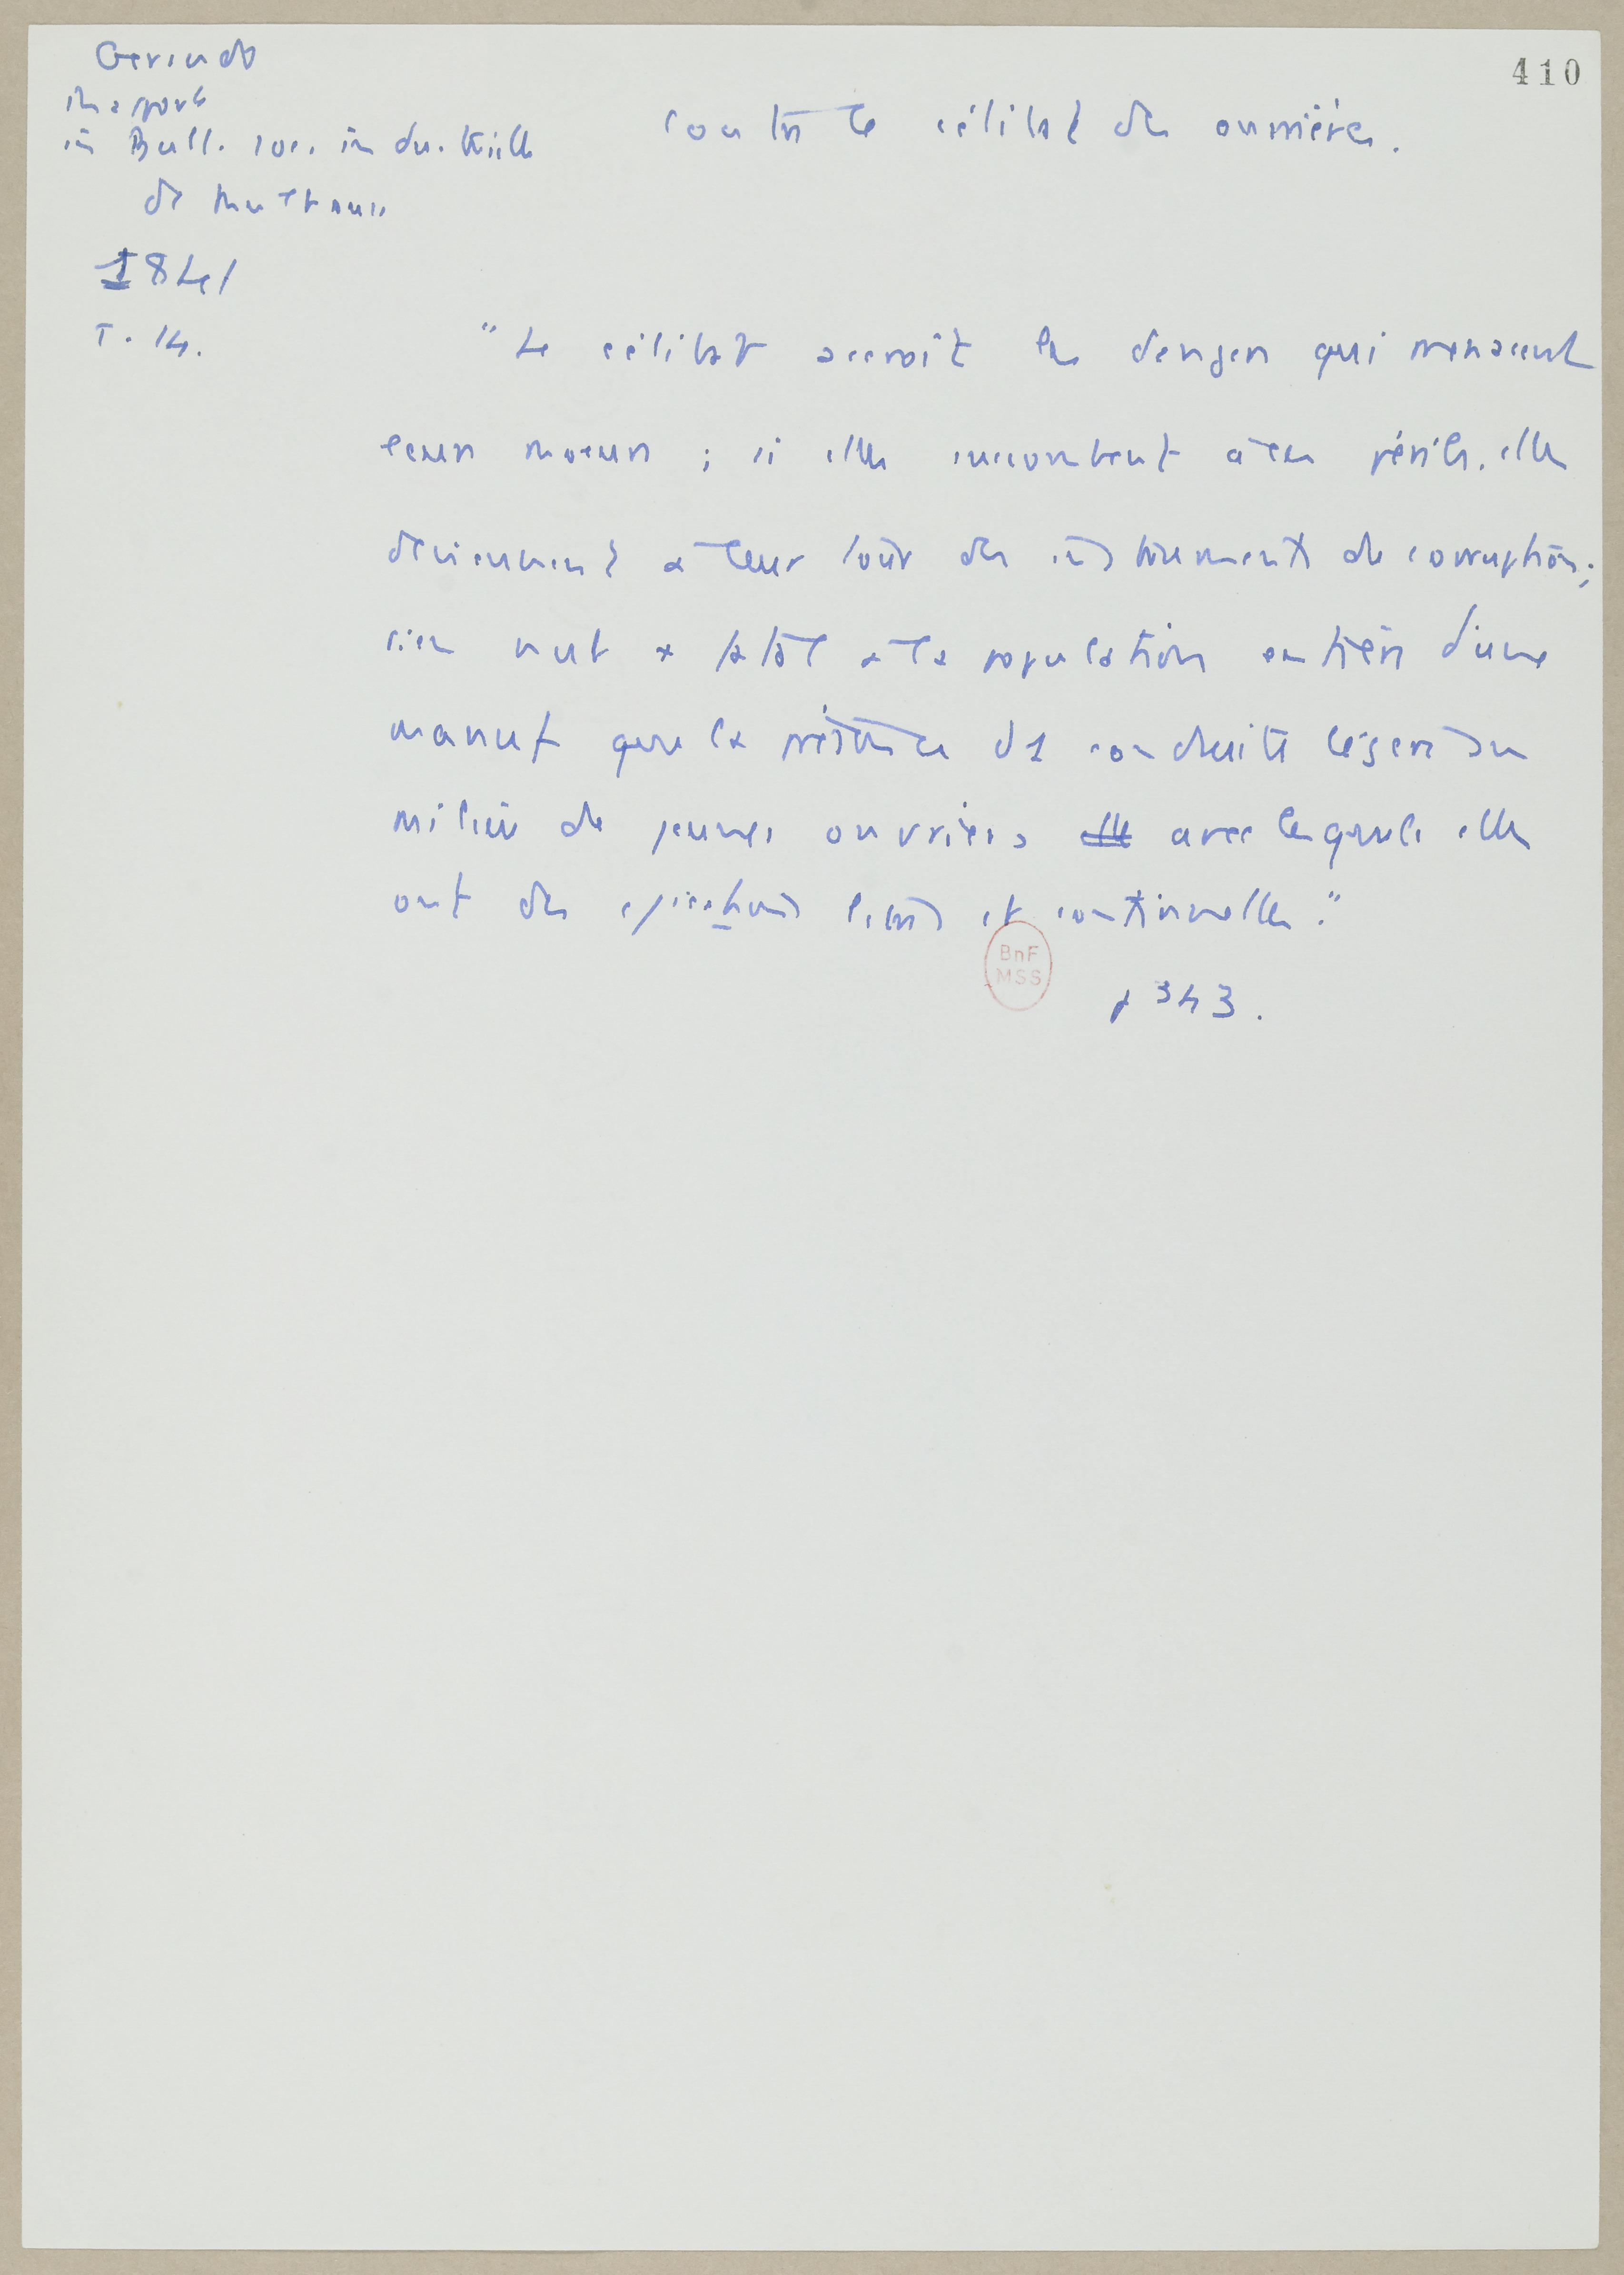 410
Gerando
rapport
in Bull. soc. industrielle
de Mulhouse
1841
T. 14.
Contre le célibat des ouvrières.
"Le célibat accroît les dangers qui menacent
leurs moeurs ; si elles succombent à ces périls, elles
deviennent à leur tour des instruments de corruption ;
rien n'est + fatal à la population entière d'une
manuf que la présence d1 conduite légère au
milieu de jeunes ouvriers avec lesquels elles
ont des et continuelles."
BnF
MSS
p 343.